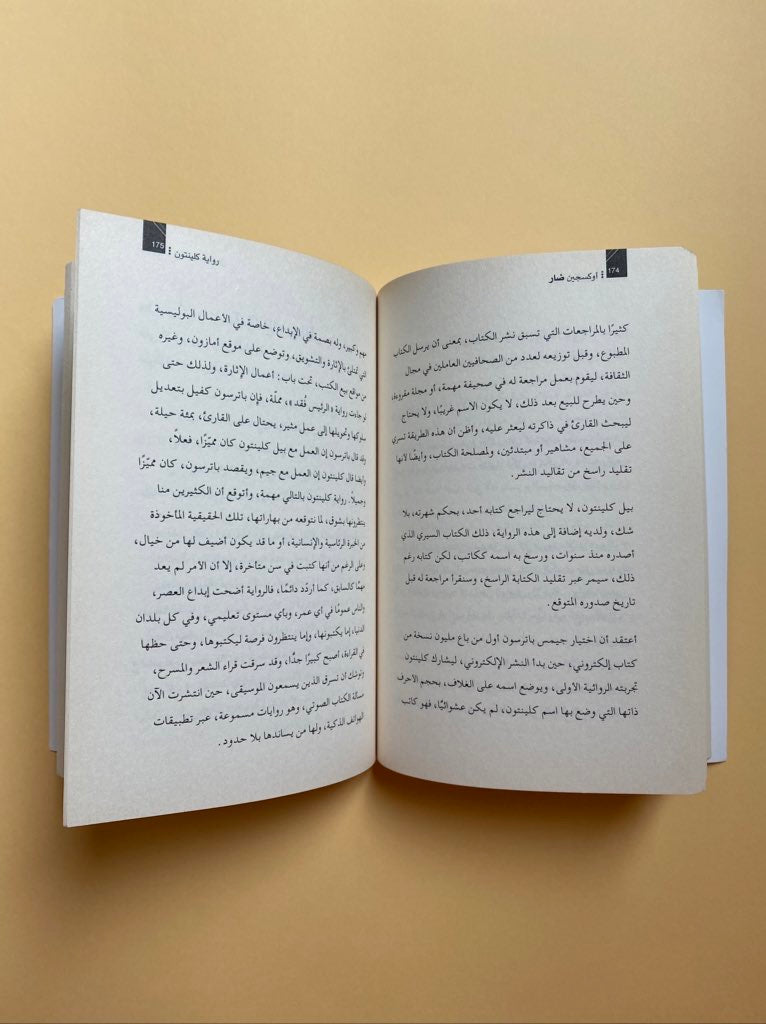 174 أوكسجين ضار
كثيرًا بالمراجعات التي تسبق نشر الكتاب، بمعنى أن يرسل الكتاب
المطبوع، وقبل توزيعه لعدد من الصحافيين العاملين في مجال
الثقافة، ليقوم بعمل مراجعة له في صحيفة مهمة، أو مجلة مقروءة،
وحين يطرح للبيع بعد ذلك، لا يكون الاسم غريبًا، ولا يحتاج
ليبحث القارئ في ذاكرته ليعثر عليه، وأظن أن هذه الطريقة تسري
على الجميع، مشاهير أو مبتدئين، ولمصلحة الكتاب، وأيضًا لأنها
تقليد راسخ من تقاليد النشر.
بيل كلينتون، لا يحتاج ليراجع كتابه أحد، بحكم شهرته، بلا
شك، ولديه إضافة إلى هذه الرواية، ذلك الكتاب السيري الذي
أصدره منذ سنوات، ورسخ به اسمه ككاتب، لكن كتابه رغم
ذلك، سيمر عبر تقليد الكتابة الراسخ، وسنقرأ مراجعة له قبل
تاريخ صدوره المتوقع.
أعتقد أن اختيار جيمس باترسون أول من باع مليون نسخة من
كتاب إلكتروني، حين بدأ النشر الإلكتروني، ليشارك كلينتون
تجربته الروائية الأولى، ويوضع اسمه على الغلاف، بحجم الأحرف
ذاتها التي وضع بها اسم كلينتون، لم يكن عشوائيًا، فهو كاتب
رواية كلينتون 175
مهم وكبير، وله بصمة في الإبداع، خاصة في الأعمال البوليسية
التي تمتلئ بالإثارة والتشويق، وتوضع على موقع أمازون، وغيره
من مواقع بيع الكتب، تحت باب: أعمال الإثارة، ولذلك حتى
لو جاءت رواية «الرئيس فُقد»، مملّة، فإن باترسون كفيل بتعديل
سلوكها وتحويلها إلى عمل مثير، يحتال على القارئ، بمئة حيلة،
وقد قال باترسون إن العمل مع بيل كلينتون كان مميّزًا، فعلاً،
وأيضا قال كلينتون إن العمل مع جيم، ويقصد باترسون، كان مميّزًا
وجميلاً. رواية كلينتون بالتالي مهمة، وأتوقع أن الكثيرين منا
ينتظرونها بشوق، لما نتوقعه من بهاراتها، تلك الحقيقية المأخوذة
من الخبرة الرئاسية والإنسانية، أو ما قد يكون أضيف لها من خيال،
وعلى الرغم من أنها كتبت في سن متأخرة، إلا أن الأمر لم يعد
مهمًا كالسابق، كما أردّد دائمًا، فالرواية أضحت إبداع العصر،
والناس عمومًا في أي عمر، وبأي مستوى تعليمي، وفي كل بلدان
الدنيا، إما يكتبونها، وإما ينتظرون فرصة ليكتبوها، وحتى حظها
في القراءة، أصبح كبيرًا جدًّا، وقد سرقت قراء الشعر والمسرح،
وتوشك أن تسرق الذين يسمعون الموسيقى، حين انتشرت الآن
مسألة الكتاب الصوتي، وهو روايات مسموعة، عبر تطبيقات
الهواتف الذكية، ولها من يساندها بلا حدود.